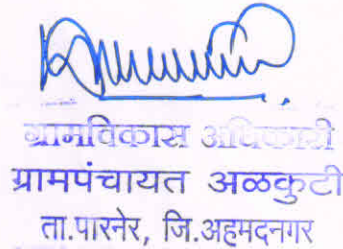 ग्रामविकास अधिकारी
ग्रामपंचायत अळकुटी
ता.पारनेर, जि.अहमदनगर